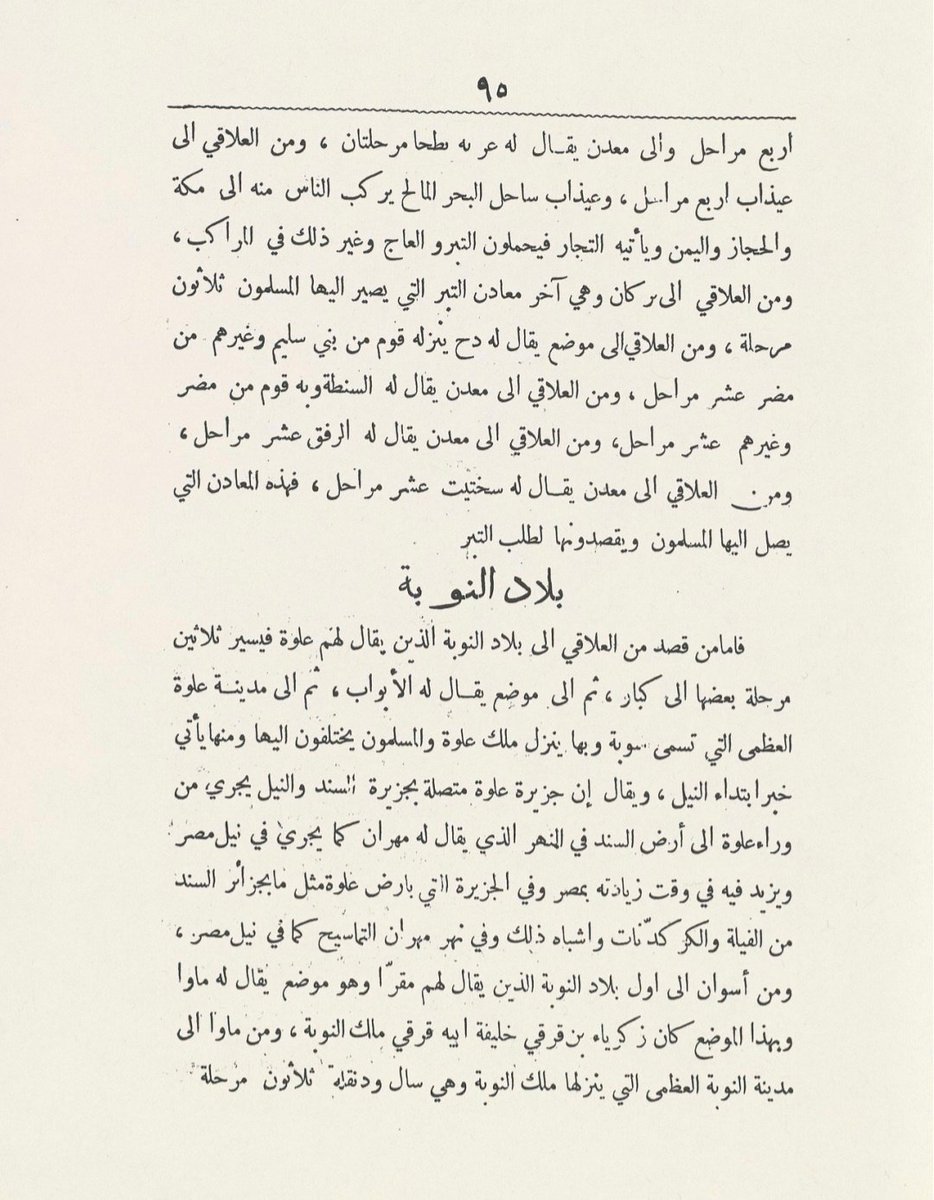 ٩٥
اربع مراحل والى معدن يقال له عربه بطحا مرحلتان ، ومن العلاقي الى
عيذاب اربع مراحل ، وعيذاب ساحل البحر المالح يركب الناس منه الى مكة
والحجاز واليمن ويأتيه التجار فيحملون التبرو العاج وغير ذلك في المراكب ،
ومن العلاقي الى بركان وهي آخر معادن التبر التي يصير اليها المسلمون ثلاثون
مرحلة ، ومن العلاقي الى موضع يقال له دح ينزله قوم من بني سليم وغيرهم من
مضر عشر مراحل ، ومن العلاقي الى معدن يقال له السنطة وبه قوم من مضر
وغيرهم عشر مراحل ، ومن العلاقي الى معدن يقال له الرفق عشر مراحل ،
ومن العلاقي الى معدن يقال له سختيت عشر مراحل ، فهذه المعادن التي
يصل اليها المسلمون ويقصدونها لطلب التبر
بلاد النوبة
فامامن قصد من العلاقي الى بلاد النوبة الذين يقال لهم علوة فيسير ثلاثين
مرحلة بعضها الى كبار ، ثم الى موضع يقال له الأبواب ، ثم الى مدينة علوة
العظمى التي تسمى سوبة وبها ينزل ملك علوة والمسلمون يختلفون اليها ومنها يأتي
خبر ابتداء النيل ، ويقال إن جزيرة علوة متصلة بجزيرة السند والنيل يجري من
وراء علوة الى أرض السند في النهر الذي يقال له مهران كما يجري في نيل مصر
ويزيد فيه في وقت زيادته بمصر وفي الجزيرة التي بارض علوة مثل مابجزائر السند
من الفيلة والكركدّنات واشباه ذلك وفي نهر مهران التماسيح كما في نيل مصر ،
ومن أسوان الى اول بلاد النوبة الذين يقال لهم مقرّا وهو موضع يقال له ماوا
وبهذا الموضع كان زكرياء بن قرقي خليفة ابيه قرقي ملك النوبة ، ومن ماوا الى
مدينة النوبة العظمى التي ينزلها ملك النوبة وهي سال ودنقلة ثلاثون مرحلة